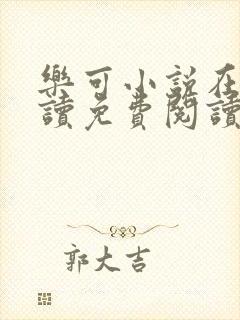 樂可小說在
讀免費閱讀
郭大吉